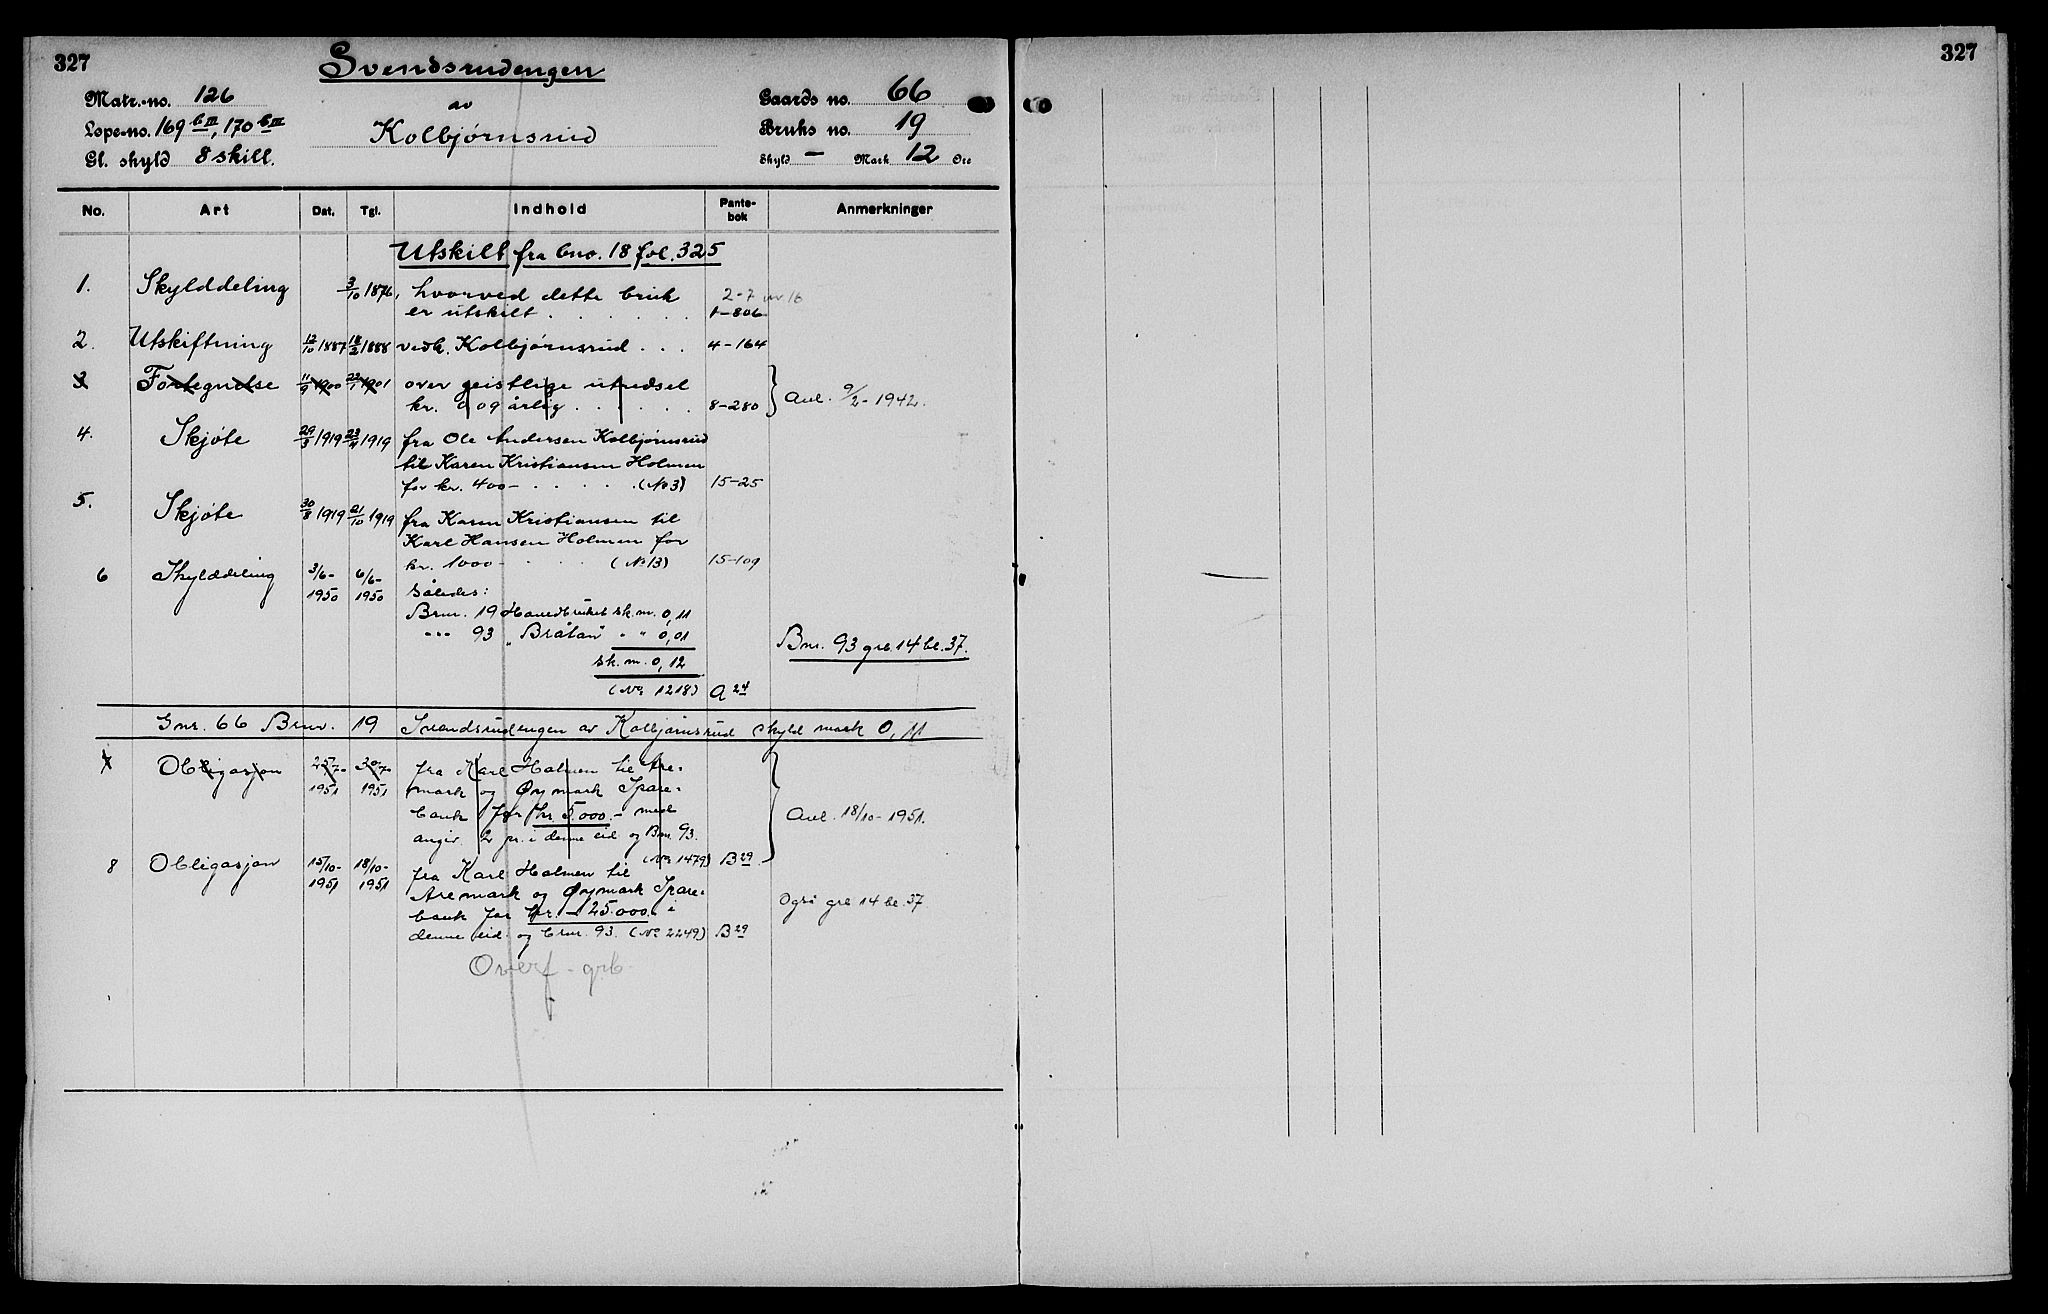 327
Svendsrudengen
Matr.-no. 126
av
Gaards no. 66
Løpe-no. 169 b III, 170 b IV
Kolbjørnsrud
Bruks no. 19
Gl. skyld 8 skill.
Skyld – Mark 12 Øre
No. Art Dat. Tgl. Indhold Pante-bok Anmerkninger
Utskilt fra bno. 18 fol. 325
1. Skylddeling 3/10 1876, hvorved dette bruk 2-7
er utskilt . . . . . . 1-806
2. Utskiftning 12/10 1887 18/2 1888 vedk. Kolbjørnsrud . . . 4-164
3 Fortegnelse 11/9 1900 22/1 1901 over geistlige utredsel
kr. 0 09 årlig . . . . . . 8-280 Avl. 9/2-1942.
4. Skjøte 29/3 1919 23/4 1919 fra Ole Andersen Kolbjørnsrud
til Karen Kristiansen Holmen
for kr. 400- . . . . . (No 3) 15-25
5. Skjøte 30/8 1919 21/10 1919 fra Karen Kristiansen til
Karl Hansen Holmen for
kr. 1000- . . . . (No 13) 15-109
6 Skylddeling 3/6-1950 6/6-1950 Således:
Brnr. 19 Hovedbruket sk.m. 0,11
" 93 "Bråtan" " " 0,01 Bnr. 93 grb. 14 bl. 37.
sk.m. 0,12
(No 1218) A 24
Gnr. 66 Brnr. 19 Svendsrudengen av Kolbjørnsrud skyld mark 0,11
7 Obligasjon 25/7-1951 30/7-1951 fra Karl Holmen til Are-
mark og Øymark Spare-
bank for kr. 5.000.- med Avl. 18/10-1951.
angiv. 2 pr. i denne eid og Bnr. 93.
(No 1479) B 29
8 Obligasjon 15/10-1951 18/10-1951 fra Karl Holmen til
Aremark og Øymark Spare-
bank for kr. -25.000. i Også grb 14 bl. 37
denne eid. og brnr. 93. (No 2249) B 29
Overf - grb-
327